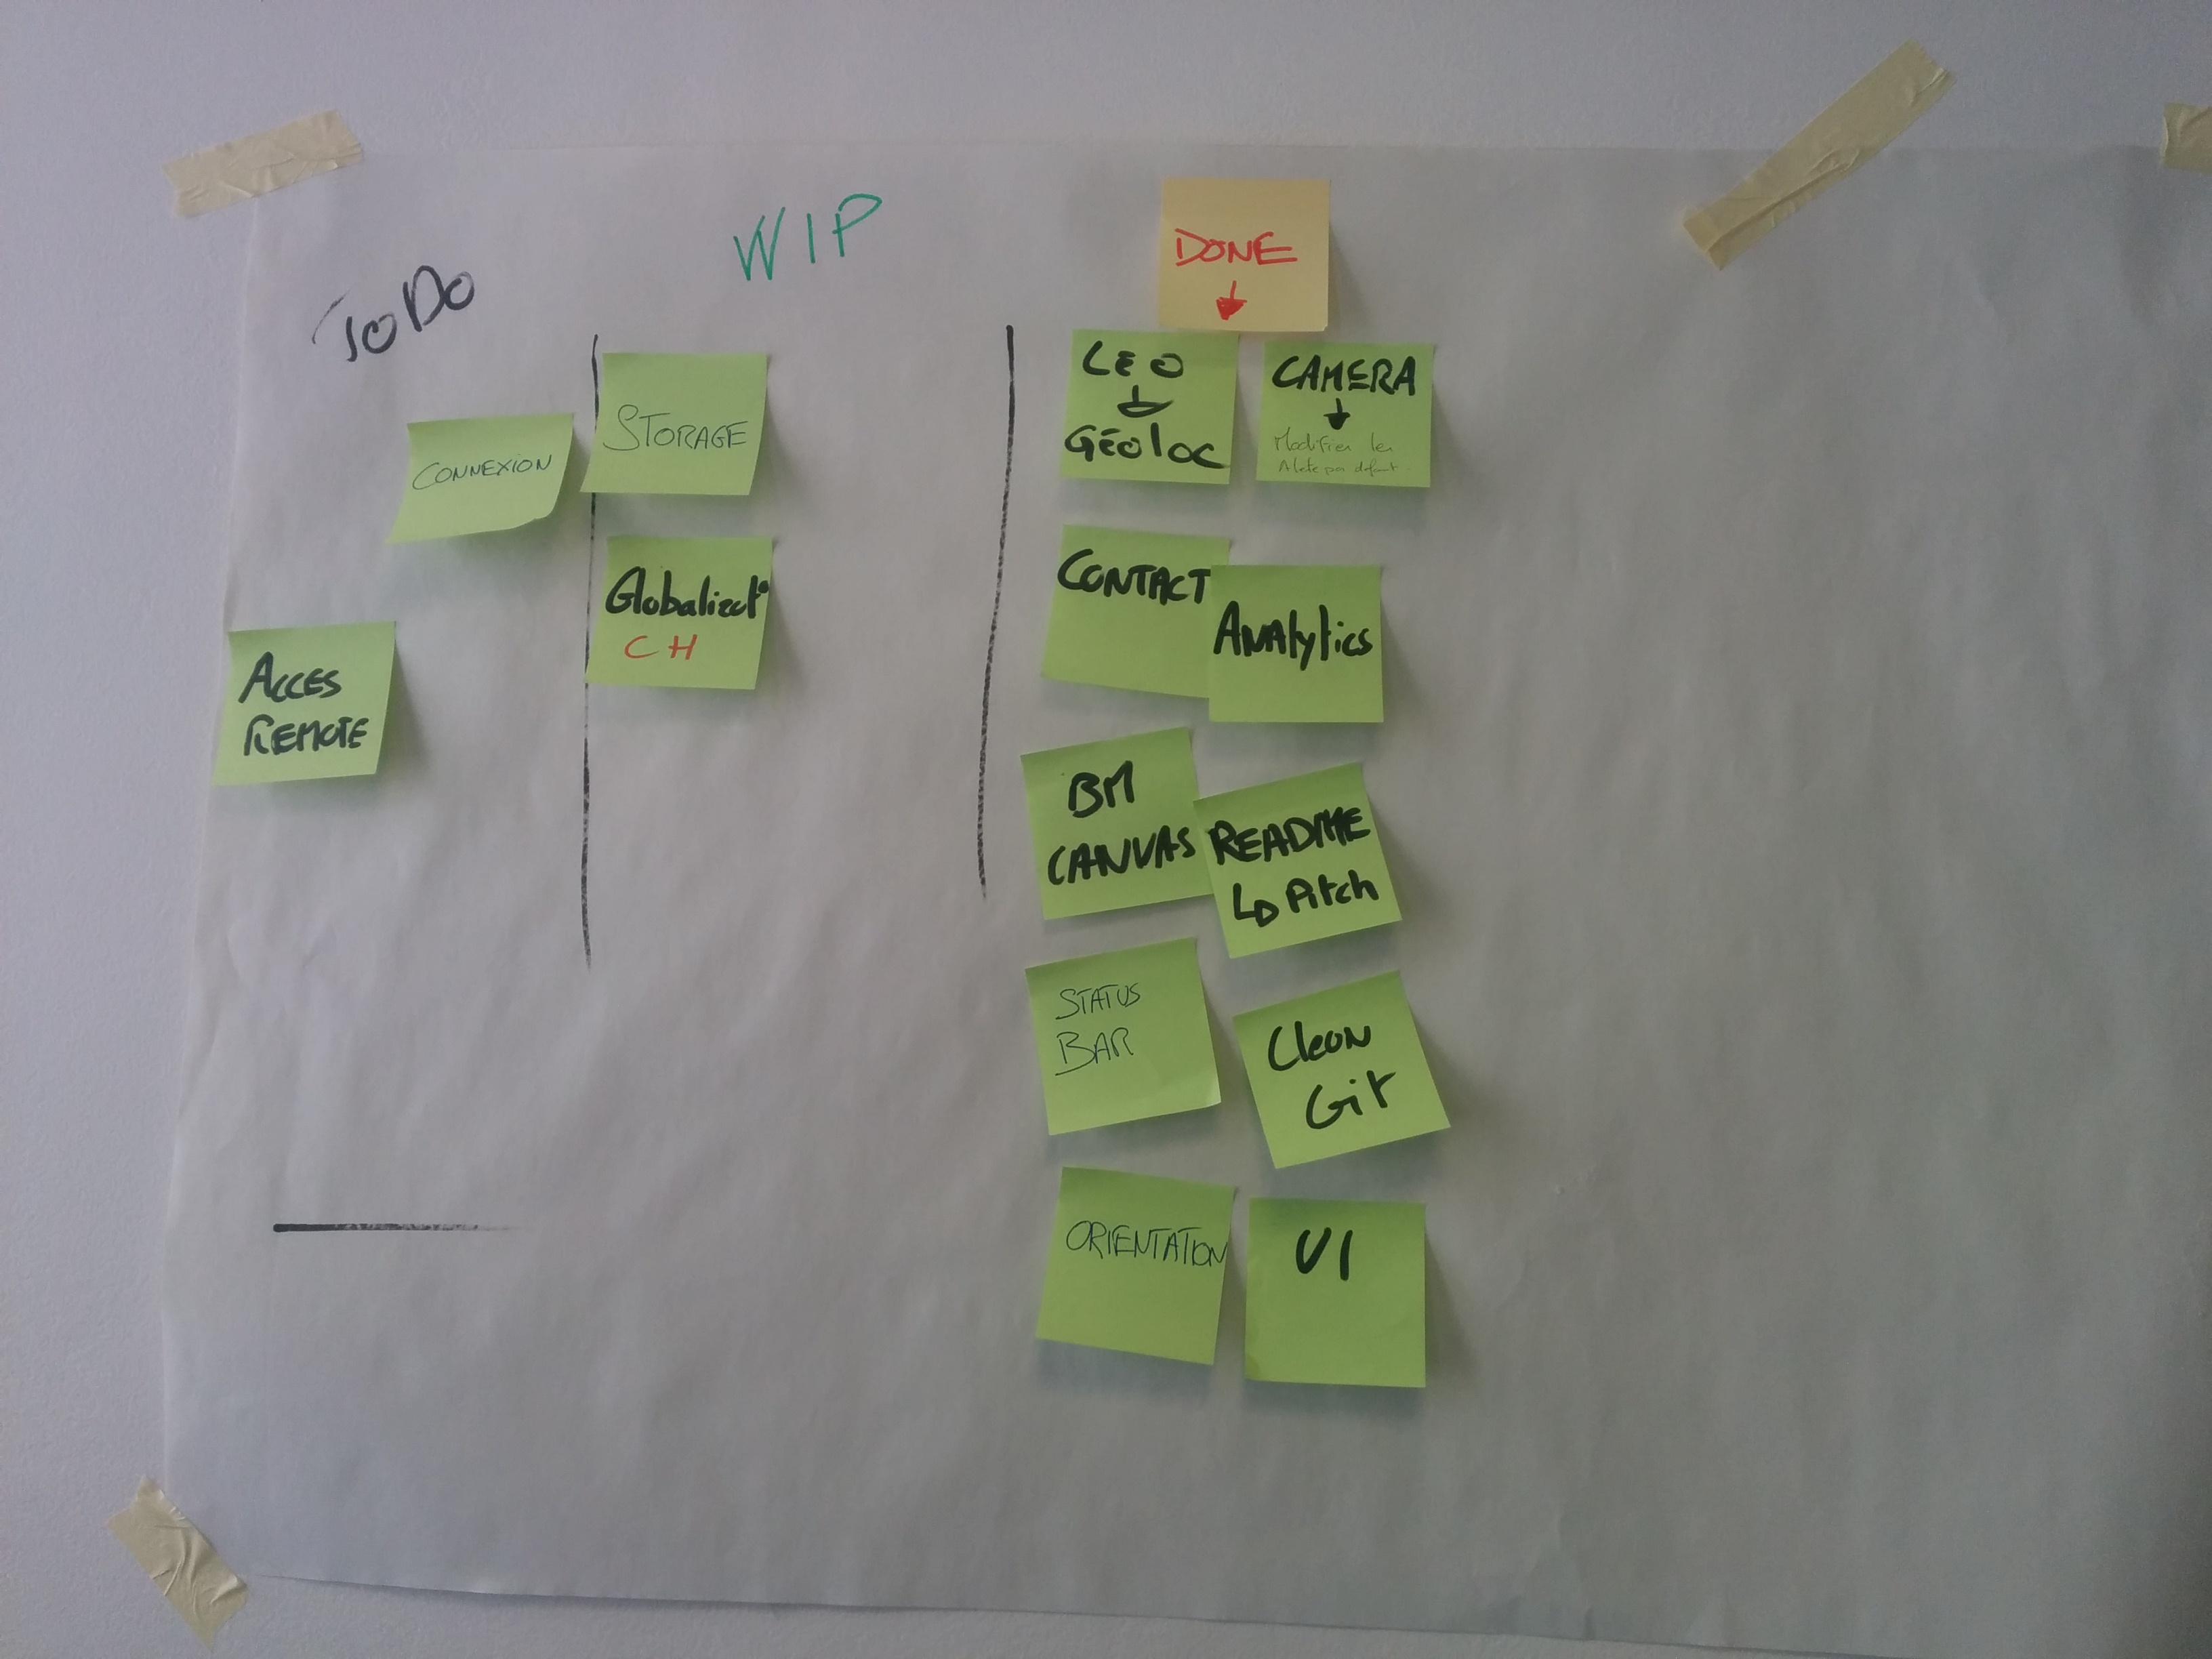 ToDo
WIP
DONE
CONNEXION
ACCES
REMOTE
STORAGE
Globalizat°
CH
LEO
Géoloc
CAMERA
Modifier les
par défaut
CONTACT
Analytics
BM
CANVAS
README
Pitch
STATUS
BAR
Clean
Git
ORIENTATION
UI